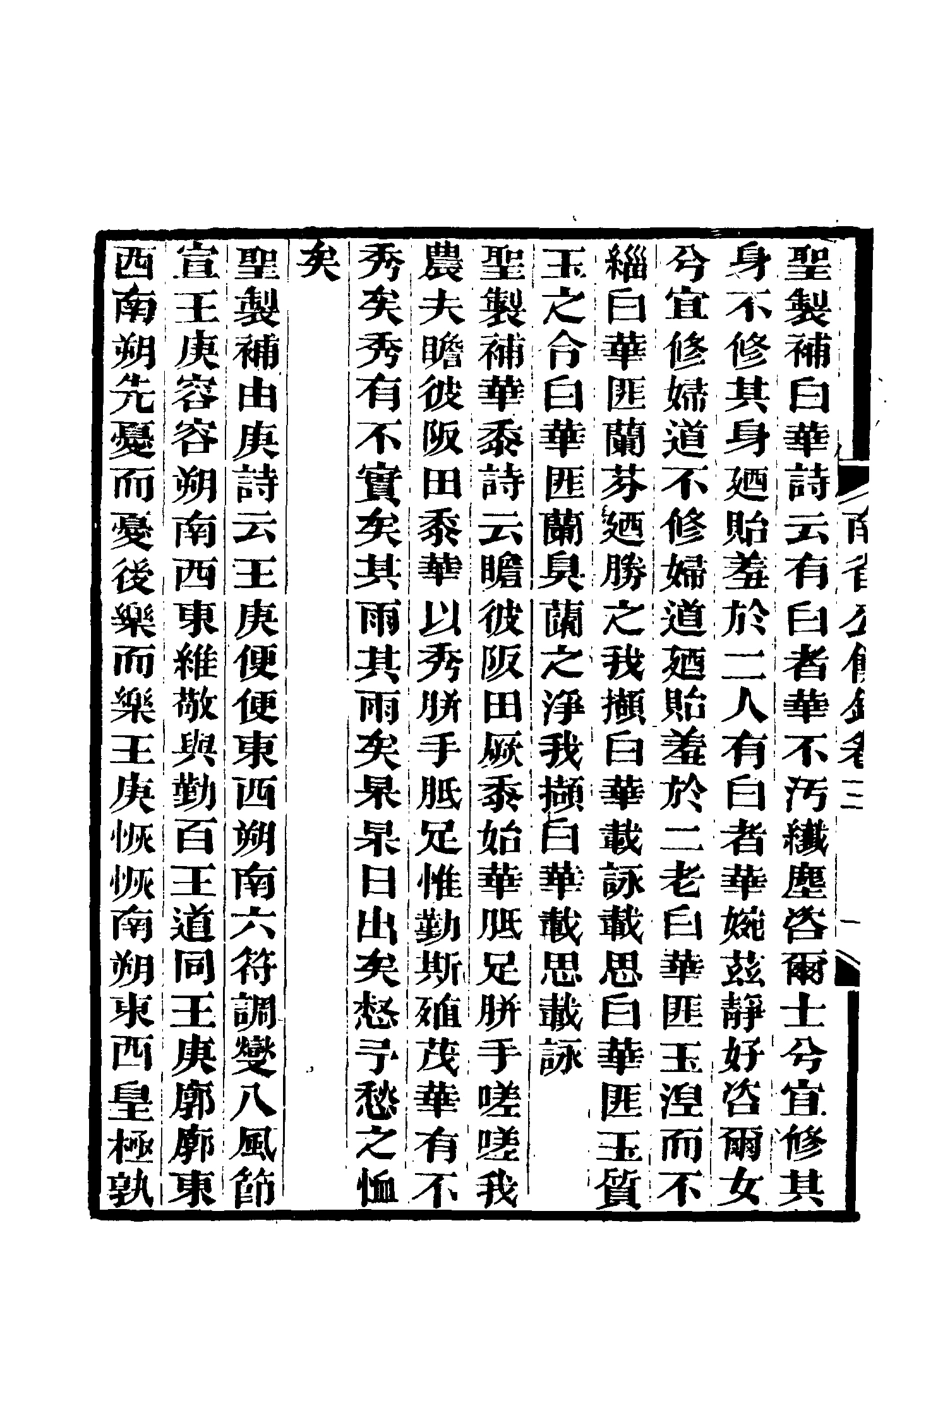 聖製補白華詩云有白者華不汚纖塵咨爾士兮宜修其
身不修其身廼貽羞於二人有白者華婉茲靜好咨爾女
兮宜修婦道不修婦道廼貽羞於二老白華匪玉湼而不
緇白華匪蘭芬廼勝之我擷白華載詠載思白華匪玉質
玉之合白華匪蘭臭蘭之淨我擷白華載思載詠
聖製補華黍詩云瞻彼阪田厥黍始華胝足胼手嗟嗟我
農夫瞻彼阪田黍華以秀胼手胝足惟勤斯殖茂華有不
秀矣秀有不實矣其雨其雨矣杲杲日出矣愁予愁之恤
矣
聖製補由庚詩云王庚便便東西朔南六符調爕八風節
宣王庚容容朔南西東維敬與勤百王道同王庚廓廓東
西南朔先憂而憂後樂而樂王庚恢恢南朔東西皇極孰
南省公餘錄卷三
一